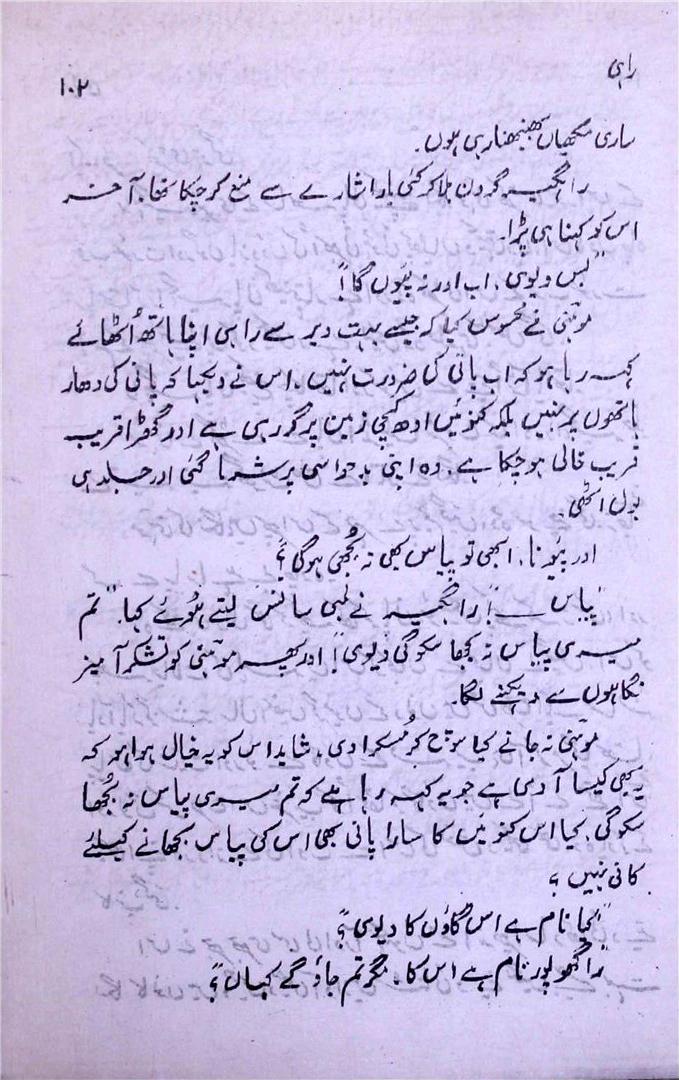 راہی
۱۰۲
ساری مکھیاں بھنبھنا رہی ہوں۔
راہگیر گردن ہلا کر کئی بار اشارے سے منع کر چکا تھا۔ آخر
اس کو کہنا ہی پڑا۔
"بس دیوی، اب اور نہ پیوں گا!"
موہنی نے محسوس کیا کہ جیسے بہت دیر سے راہی اپنا ہاتھ اُٹھائے
کہہ رہا ہو کہ اب پانی کی ضرورت نہیں۔ اس نے دیکھا کہ پانی کی دھار
ہاتھوں پر نہیں بلکہ کنوئیں ادھ کچی زمین پر گر رہی ہے اور گھڑا قریب
قریب خالی ہو چکا ہے۔ وہ اپنی بدحواسی پر شرما گئی اور جلد ہی
بول اٹھی۔
اور پیو نا، ابھی تو پیاس بھی نہ بُجھی ہوگی؟"
"پیاس ــــ!" راہگیر نے لمبی سانس لیتے ہوئے کہا۔ "تم
میری پیاس نہ بجھا سکو گی دیوی!" اور پھر موہنی کو تشکر آمیز
نگاہوں سے دیکھنے لگا۔
موہنی نہ جانے کیا سوچ کر مُسکرا دی۔ شاید اس کو یہ خیال ہوا ہو کہ
یہ بھی کیسا آدمی ہے جو یہ کہہ رہا ہے کہ تم میری پیاس نہ بُجھا
سکو گی۔ کیا اس کنوئیں کا سارا پانی بھی اس کی پیاس بجھانے کیلئے
کافی نہیں؟
"کیا نام ہے اس گاؤں کا دیوی؟"
"راگھو پور نام ہے اس کا۔ مگر تم جاؤ گے کہاں؟"